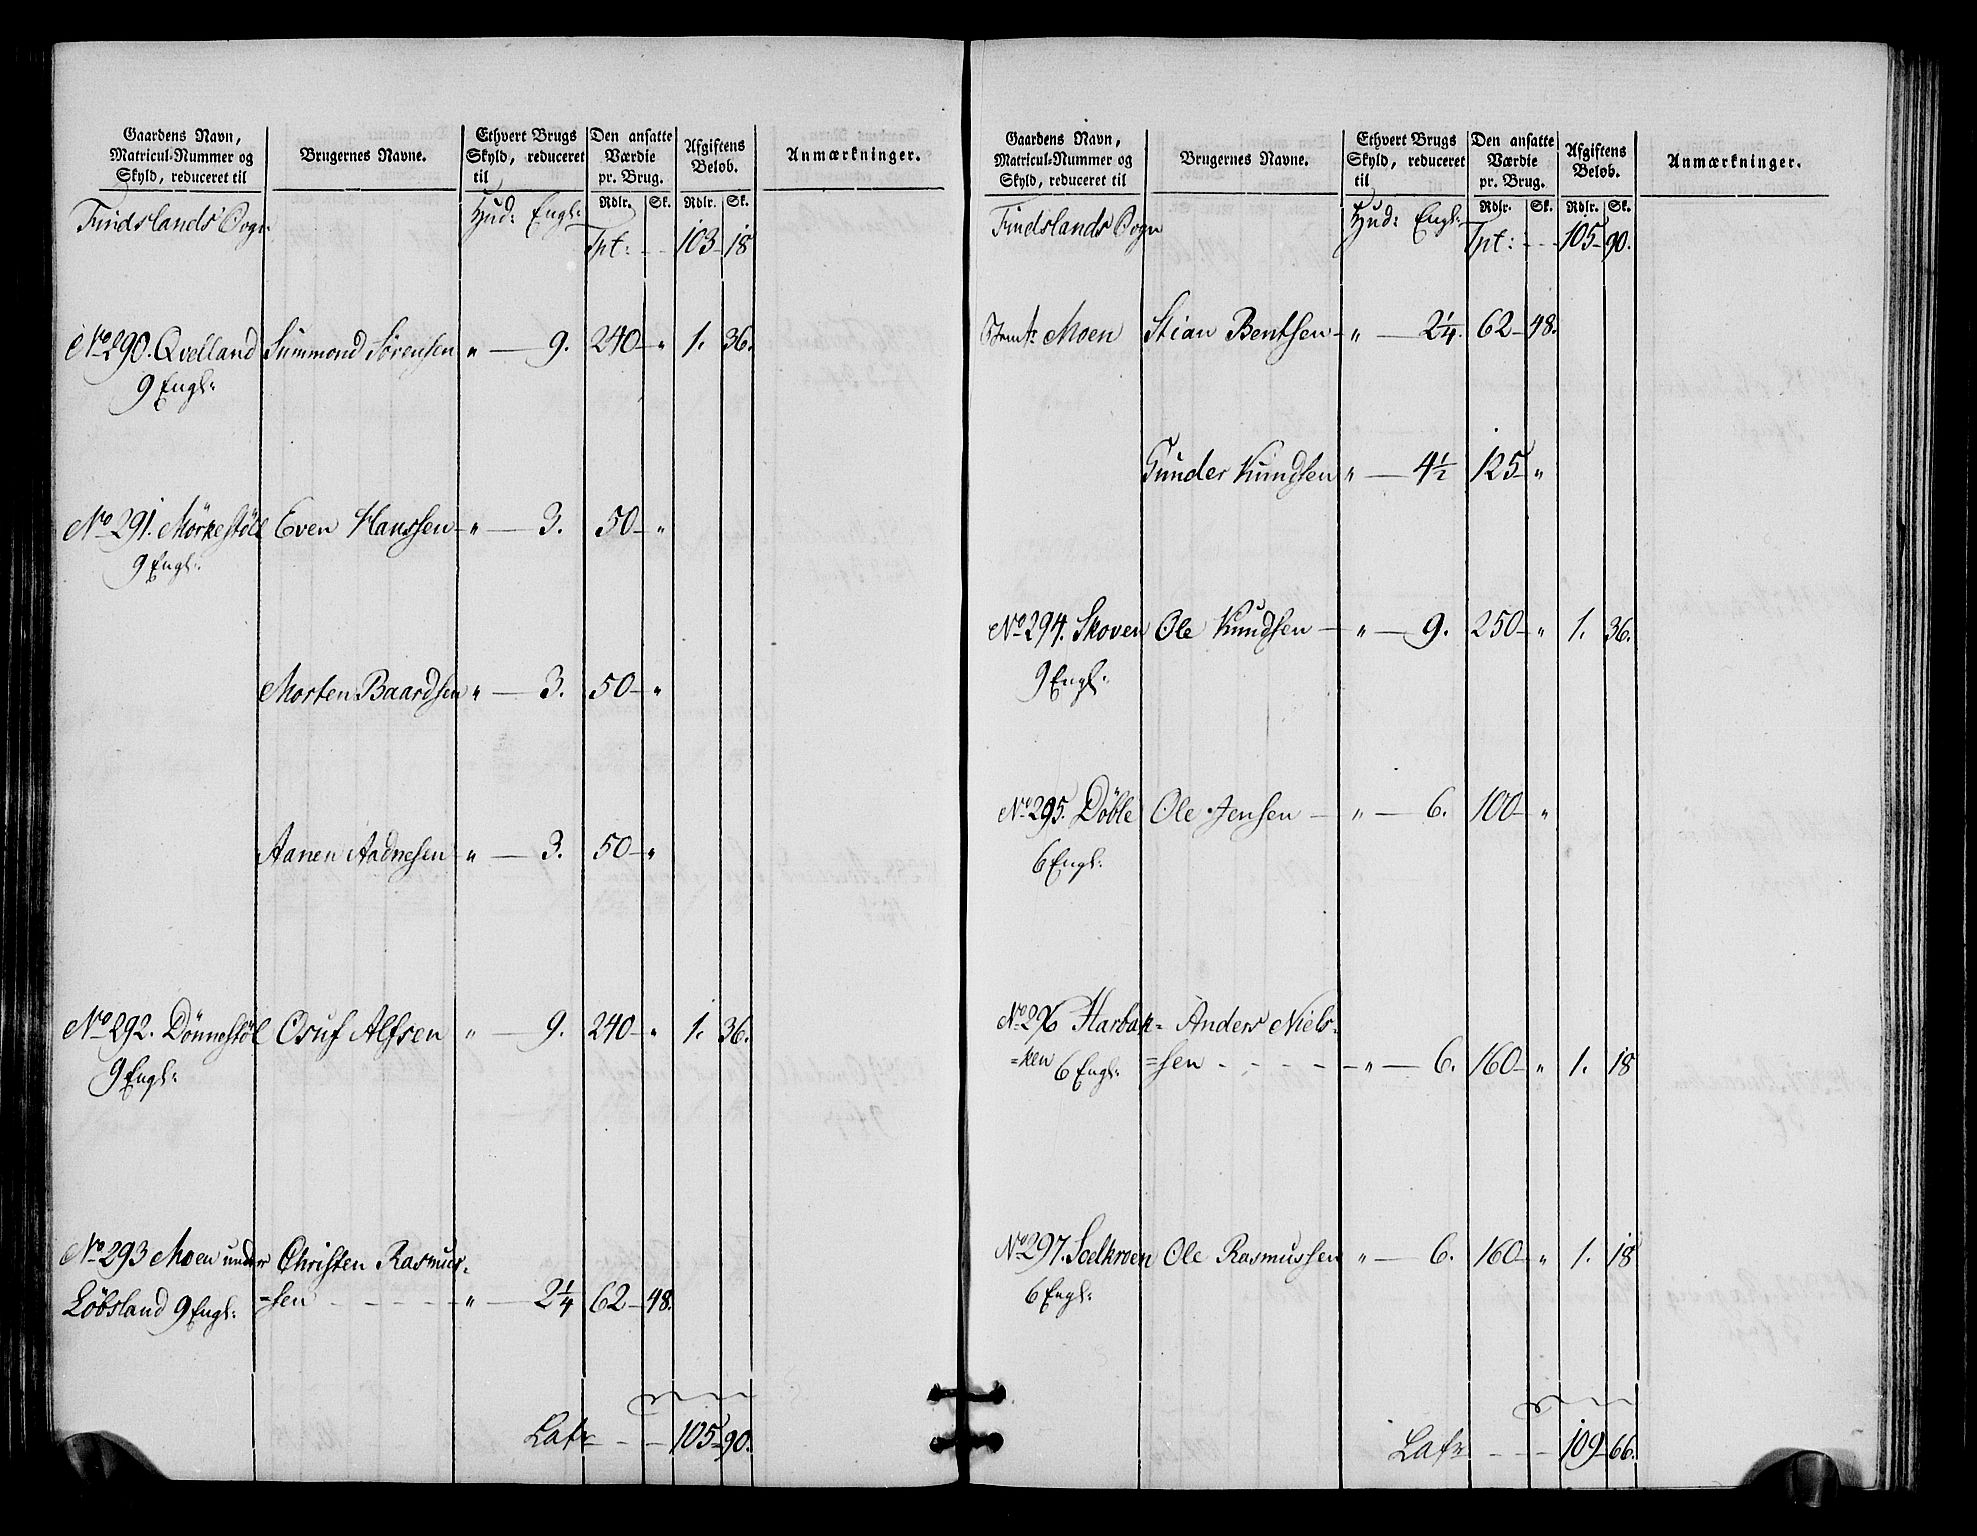 Gaardens Navn, Matricul-Nummer og Skyld, reduceret til | Brugernes Navne. | Ethvert Brugs Skyld, reduceret til | Den ansatte Værdie pr. Brug. | Afgiftens Beløb. | Anmærkninger.
Rdlr. | Sk. | Rdlr. | Sk.
Findslands Sogn | Hud: Engl: | Tpt: - - 103 - 18
No 290. Qvelland | Summond Sörensen | " — 9. | 240 - " | 1. 36.
9 Engl:
No 291. Mörkestöl | Even Hanssen - | " — 3. | 50 - "
9 Engl:
Morten Baardsen | " — 3. | 50 - "
Aanen Aadnesen - | " — 3. | 50 - "
No 292. Dönnestöl | Osuf Alfsen | " — 9. | 240 - " | 1. 36.
9 Engl:
No 293 Moen under | Christen Rasmus-
Löbsland 9 Engl: | =sen - - - - | " — 2¼ | 62 - 48.
Lats - - 105 - 90.
Gaardens Navn, Matricul-Nummer og Skyld, reduceret til | Brugernes Navne. | Ethvert Brugs Skyld, reduceret til | Den ansatte Værdie pr. Brug. | Afgiftens Beløb. | Anmærkninger.
Rdlr. | Sk. | Rdlr. | Sk.
Findslands Sogn | Hud: Engl: | Tpt: - - 105 - 90.
Moen | Stian Bentsen - | " — 2¼. | 62 - 48.
Gunder Knudsen | " — 4½ | 125 - "
No 294. Skoven | Ole Knudsen — | " — 9. | 250 - " | 1. 36.
9 Engl:
No 295. Döble | Ole Jensen — | " — 6. | 100 - "
6 Engl:
No 296 Harbak= | Anders Niels-
=ken 6 Engl: | =sen - - - - | " — 6. | 160 - " | 1. 18
No 297. Soelkroen | Ole Rasmussen | " — 6. | 160 - " | 1. 18
6 Engl:
Lats - - - 109 - 66.